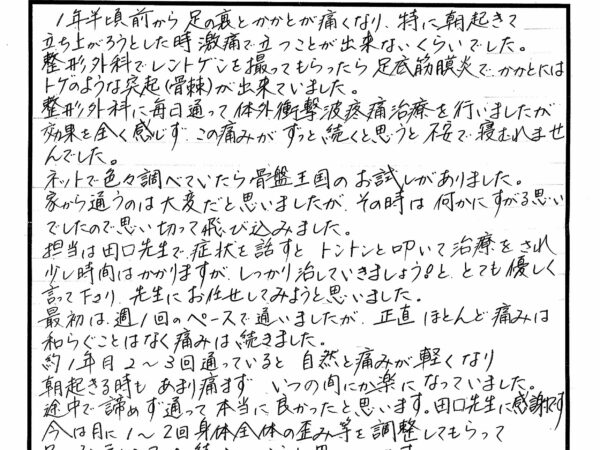 1年半頃前から足の裏とかかとが痛くなり、特に朝起きて
立ち上がろうとした時激痛で立つことが出来ないくらいでした。
整形外科でレントゲンを撮ってもらったら足底筋膜炎でかかとには
トゲのような突起(骨棘)が出来ていました。
整形外科に毎日通って体外衝撃波疼痛治療を行いましたが
効果を全く感じず、この痛みがずっと続くと思うと不安で寝むれませ
んでした。
ネットで色々調べていたら骨盤王国のお試しがありました。
家から通うのは大変だと思いましたが、その時は何かにすがる思い
でしたので思い切って飛び込みました。
担当は田口先生で、症状を話すとトントンと叩いて治療をされ
少し時間はかかりますが、しっかり治していきましょう!と、とても優しく
言って下さり、先生にお任せしてみようと思いました。
最初は、週1回のペースで通いましたが、正直ほとんど痛みは
和らぐことはなく痛みは続きました。
約1年目2~3回通っていると自然と痛みが軽くなり
朝起きる時もあまり痛まず、いつの間にか楽になっていました。
途中で諦めず通って本当に良かったと思います。田口先生に感謝です
今は月に1~2回身体全体の歪み等を調整してもらって